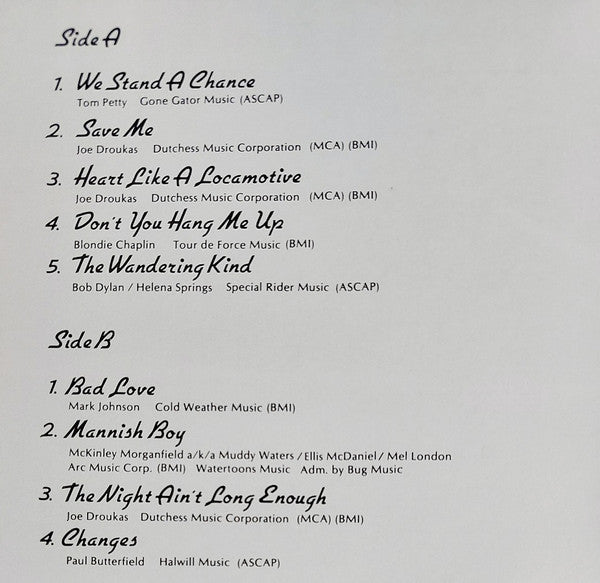 Side A
1. We Stand A Chance
Tom Petty Gone Gator Music (ASCAP)
2. Save Me
Joe Droukas Dutchess Music Corporation (MCA) (BMI)
3. Heart Like A Locamotive
Joe Droukas Dutchess Music Corporation (MCA) (BMI)
4. Don't You Hang Me Up
Blondie Chaplin Tour de Force Music (BMI)
5. The Wandering Kind
Bob Dylan / Helena Springs Special Rider Music (ASCAP)
Side B
1. Bad Love
Mark Johnson Cold Weather Music (BMI)
2. Mannish Boy
McKinley Morganfield a/k/a Muddy Waters / Ellis McDaniel / Mel London
Arc Music Corp. (BMI) Watertoons Music Adm. by Bug Music
3. The Night Ain't Long Enough
Joe Droukas Dutchess Music Corporation (MCA) (BMI)
4. Changes
Paul Butterfield Halwill Music (ASCAP)